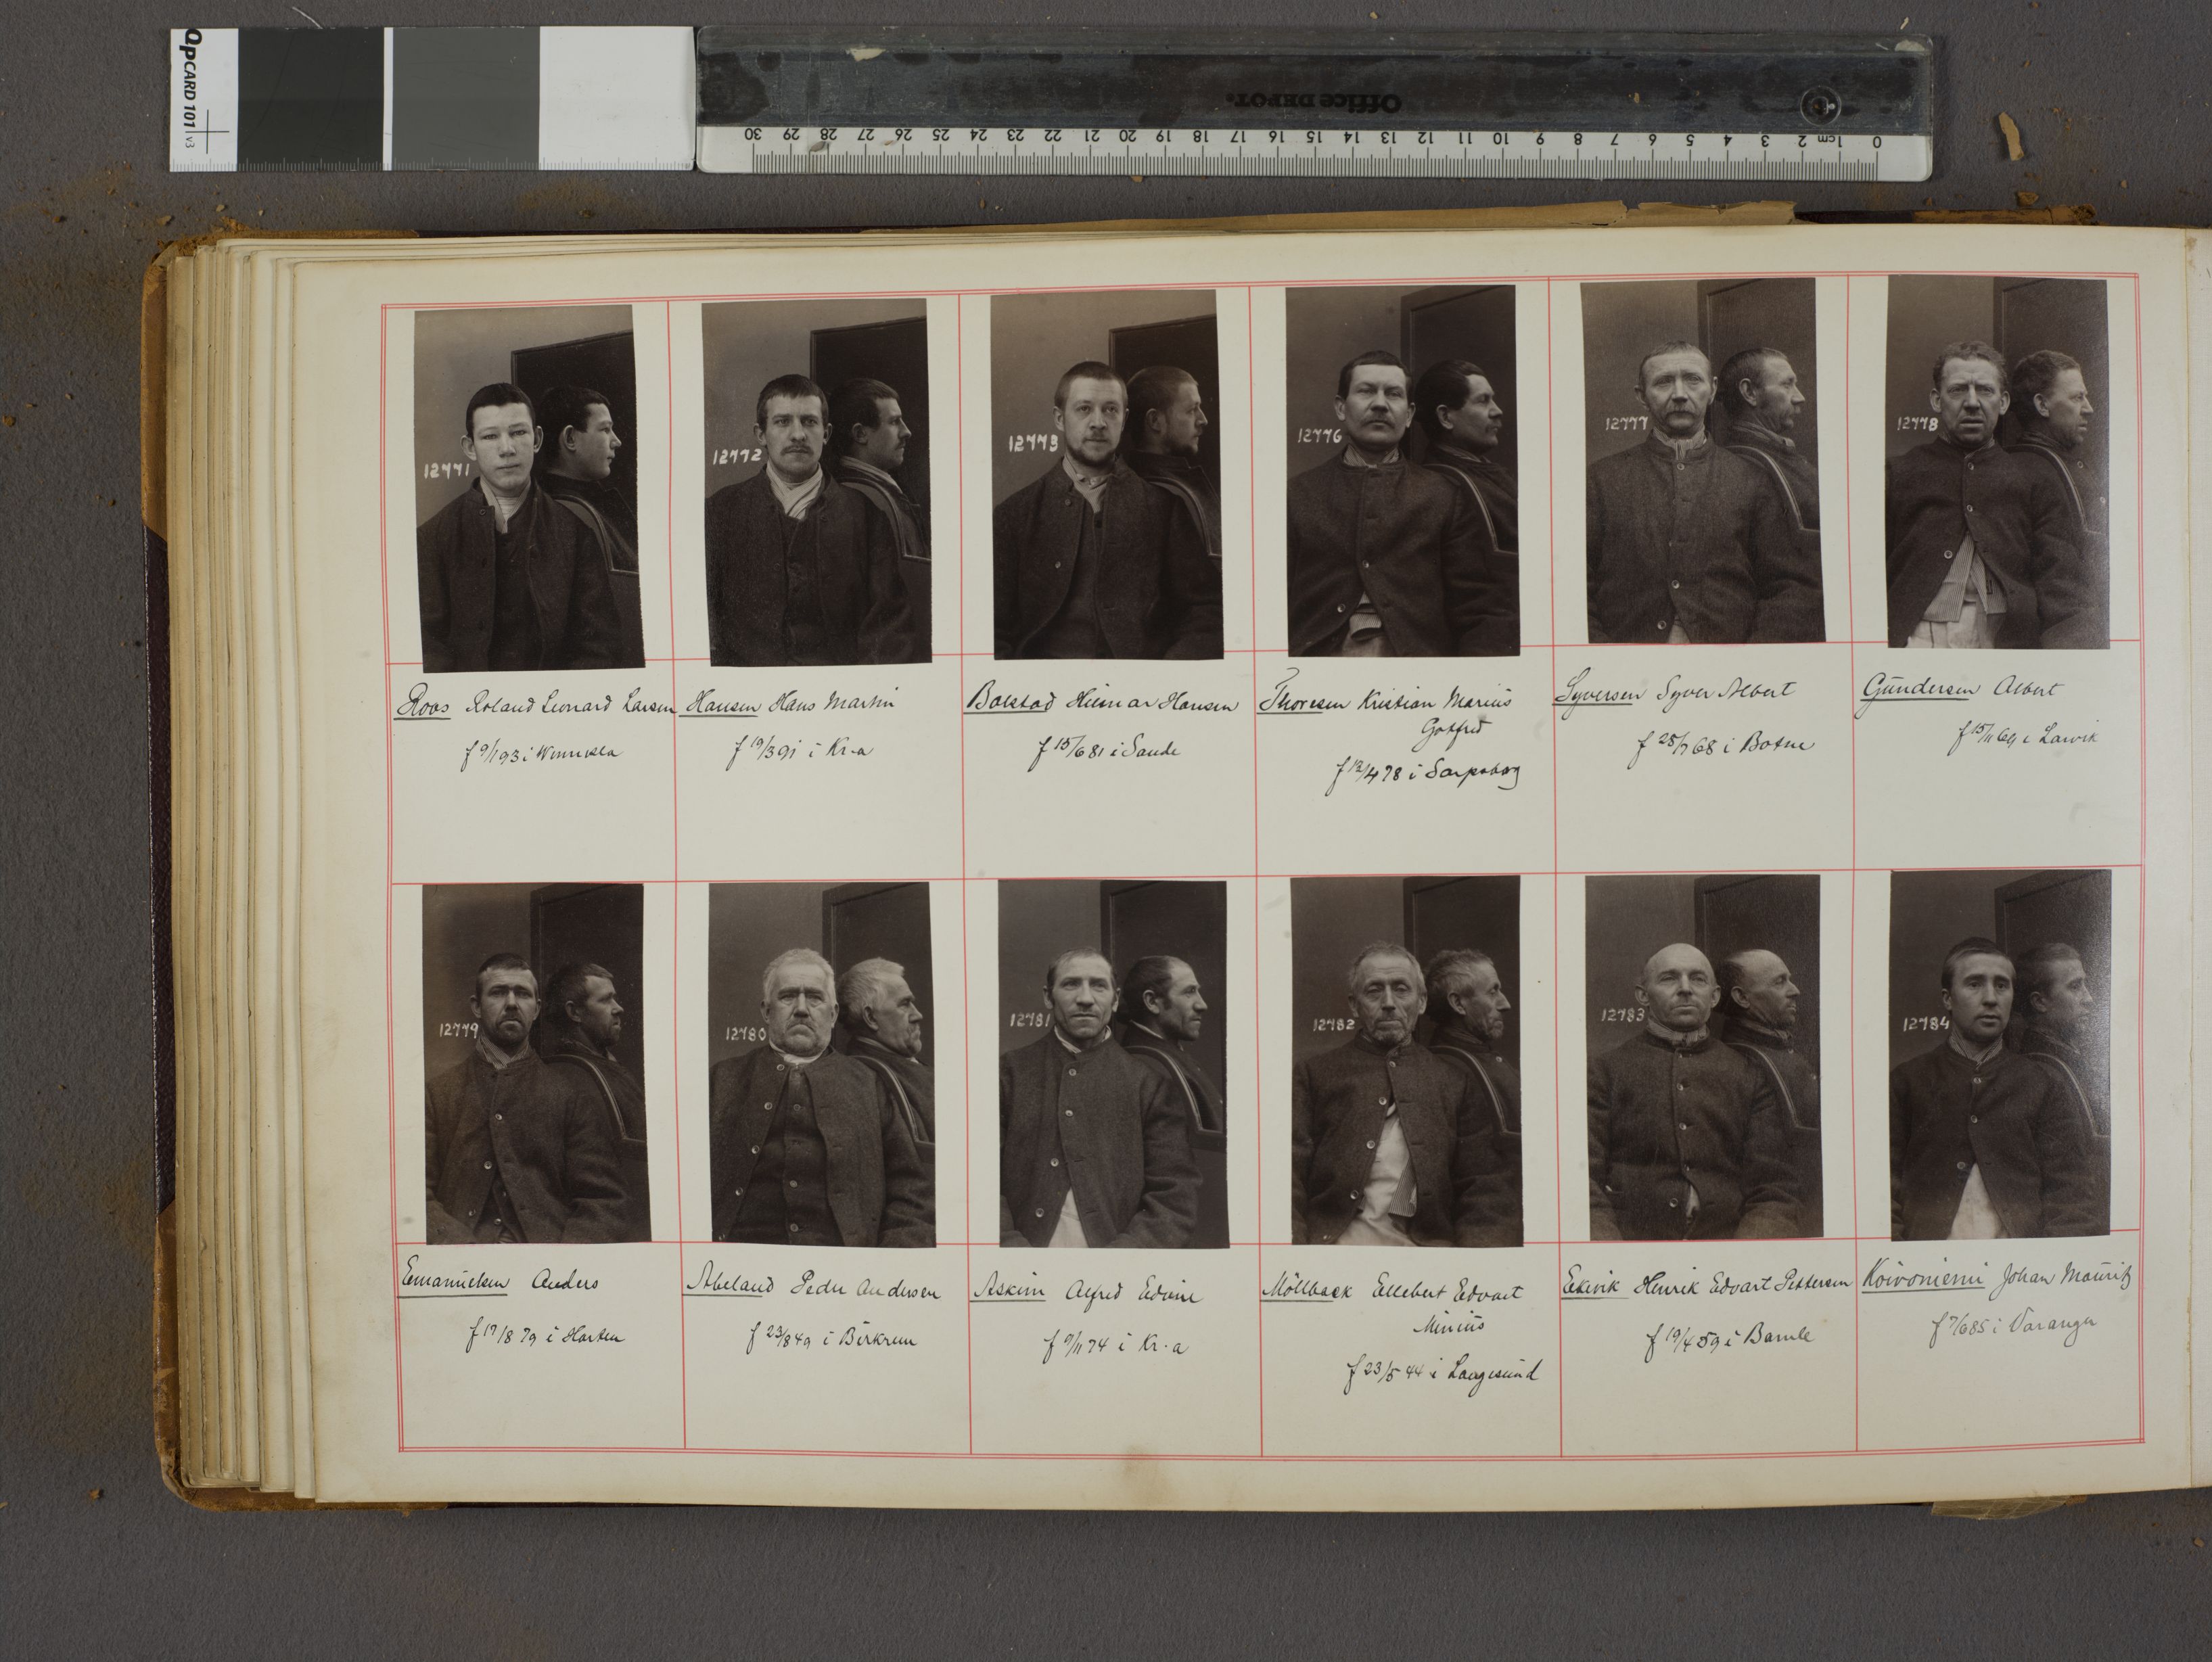 QPCARD 101 v3
Office DEPOT.
0 1cm 2 3 4 5 6 7 8 9 10 11 12 13 14 15 16 17 18 19 20 21 22 23 24 25 26 27 28 29 30
12771
12772
12773
12776
12777
12778
Roos Roland Leonard Larsen
f 9/1 93 i Wennesla
Hansen Hans Martin
f 19/3 91 i Kr.a
Bolstad Hilmar Hansen
f 15/6 81 i Sande
Thoresen Kristian Marius
Gotfred
f 12/4 78 i Sarpsborg
Syversen Syver Albert
f 28/7 68 i Botne
Gundersen Albert
f 15/11 69 i Larvik
12779
12780
12781
12782
12783
12784
Emanuelsen Anders
f 17/8 79 i Horten
Abeland Peder Andersen
f 23/8 49 i Birkrem
Askim Alfred Edvin
f 9/11 74 i Kr.a
Möllback Ellebert Edvart
Minius
f 23/5 44 i Langesund
Eekvik Henrik Edvart Pettersen
f 19/4 59 i Bamle
Koivoniemi Johan Mauritz
f 7/6 85 i Varanger